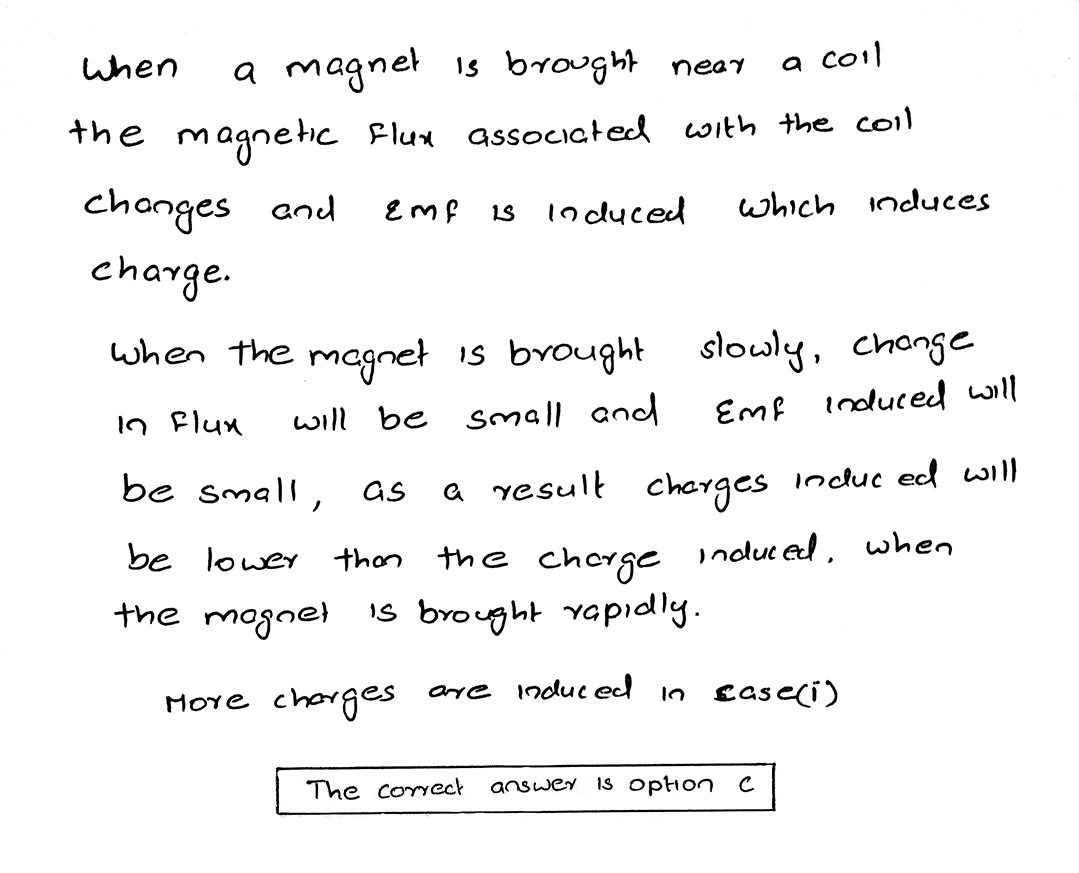 When a magnet is brought near a coil
the magnetic flux associated with the coil
changes and Emf is induced which induces
charge.
When the magnet is brought slowly, change
in flux will be small and Emf induced will
be small, as a result charges induced will
be lower than the charge induced. when
the magnet is brought rapidly.
More charges are induced in case(i)
The correct answer is option c